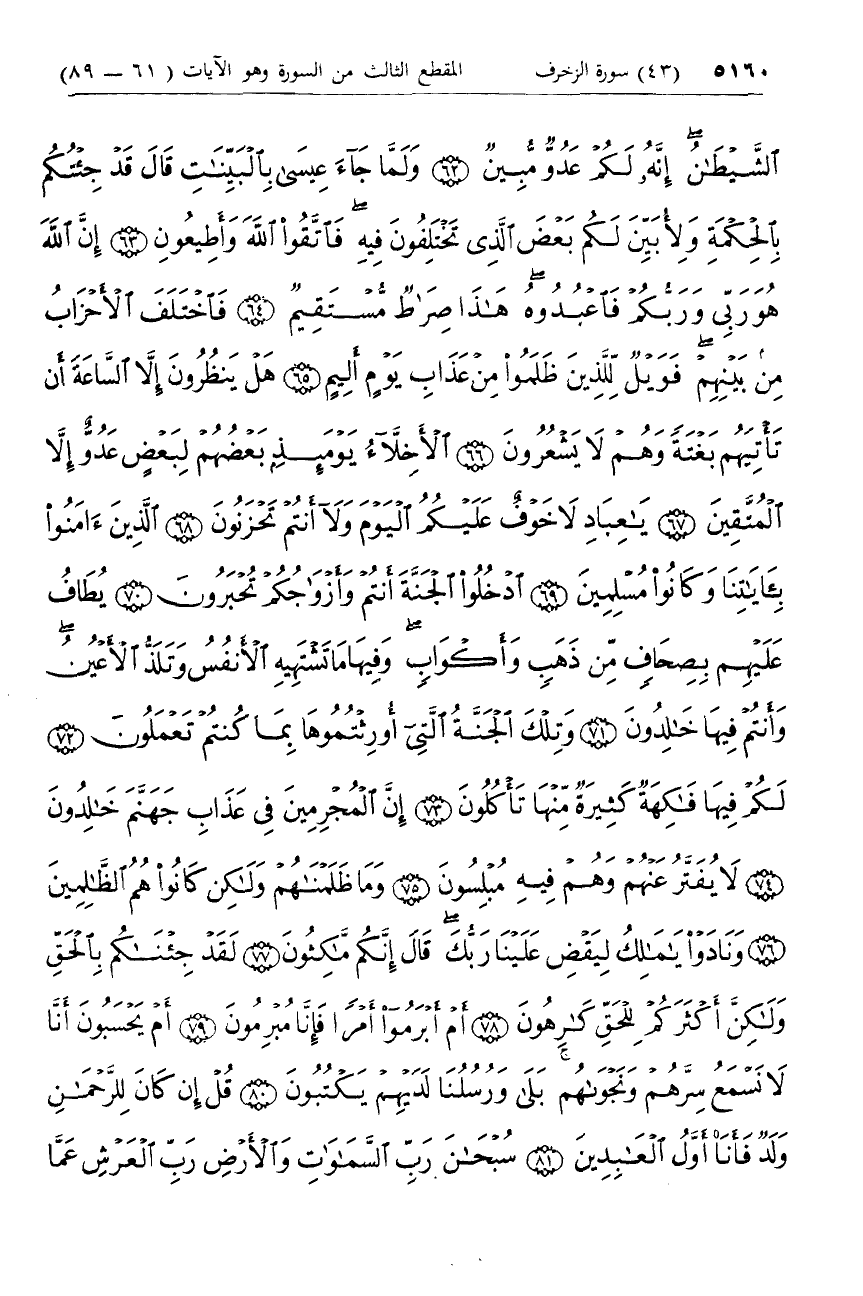 ٥١٦٠ (٤٣) سورة الزخرف المقطع الثالث من السورة وهو الآيات ( ٦١ — ٨٩)
ٱلشَّيۡطَٰنُۖ إِنَّهُۥ لَكُمۡ عَدُوٌّ مُّبِينٌ ﴿٦٢﴾ وَلَمَّا جَآءَ عِيسَىٰ بِٱلۡبَيِّنَٰتِ قَالَ قَدۡ جِئۡتُكُم
بِٱلۡحِكۡمَةِ وَلِأُبَيِّنَ لَكُم بَعۡضَ ٱلَّذِي تَخۡتَلِفُونَ فِيهِۖ فَٱتَّقُواْ ٱللَّهَ وَأَطِيعُونِ ﴿٦٣﴾ إِنَّ ٱللَّهَ
هُوَ رَبِّي وَرَبُّكُمۡ فَٱعۡبُدُوهُۚ هَٰذَا صِرَٰطٌ مُّسۡتَقِيمٌ ﴿٦٤﴾ فَٱخۡتَلَفَ ٱلۡأَحۡزَابُ
مِنۢ بَيۡنِهِمۡۖ فَوَيۡلٌ لِّلَّذِينَ ظَلَمُواْ مِنۡ عَذَابِ يَوۡمٍ أَلِيمٍ ﴿٦٥﴾ هَلۡ يَنظُرُونَ إِلَّا ٱلسَّاعَةَ أَن
تَأۡتِيَهُم بَغۡتَةً وَهُمۡ لَا يَشۡعُرُونَ ﴿٦٦﴾ ٱلۡأَخِلَّآءُ يَوۡمَئِذِۭ بَعۡضُهُمۡ لِبَعۡضٍ عَدُوٌّ إِلَّا
ٱلۡمُتَّقِينَ ﴿٦٧﴾ يَٰعِبَادِ لَا خَوۡفٌ عَلَيۡكُمُ ٱلۡيَوۡمَ وَلَآ أَنتُمۡ تَحۡزَنُونَ ﴿٦٨﴾ ٱلَّذِينَ ءَامَنُواْ
بِـَٔايَٰتِنَا وَكَانُواْ مُسۡلِمِينَ ﴿٦٩﴾ ٱدۡخُلُواْ ٱلۡجَنَّةَ أَنتُمۡ وَأَزۡوَٰجُكُمۡ تُحۡبَرُونَ ﴿٧٠﴾ يُطَافُ
عَلَيۡهِم بِصِحَافٍ مِّن ذَهَبٍ وَأَكۡوَابٍۖ وَفِيهَا مَا تَشۡتَهِيهِ ٱلۡأَنفُسُ وَتَلَذُّ ٱلۡأَعۡيُنُۖ
وَأَنتُمۡ فِيهَا خَٰلِدُونَ ﴿٧١﴾ وَتِلۡكَ ٱلۡجَنَّةُ ٱلَّتِيٓ أُورِثۡتُمُوهَا بِمَا كُنتُمۡ تَعۡمَلُونَ ﴿٧٢﴾
لَكُمۡ فِيهَا فَٰكِهَةٌ كَثِيرَةٌ مِّنۡهَا تَأۡكُلُونَ ﴿٧٣﴾ إِنَّ ٱلۡمُجۡرِمِينَ فِي عَذَابِ جَهَنَّمَ خَٰلِدُونَ
﴿٧٤﴾ لَا يُفَتَّرُ عَنۡهُمۡ وَهُمۡ فِيهِ مُبۡلِسُونَ ﴿٧٥﴾ وَمَا ظَلَمۡنَٰهُمۡ وَلَٰكِن كَانُواْ هُمُ ٱلظَّٰلِمِينَ
﴿٧٦﴾ وَنَادَوۡاْ يَٰمَٰلِكُ لِيَقۡضِ عَلَيۡنَا رَبُّكَۖ قَالَ إِنَّكُم مَّٰكِثُونَ ﴿٧٧﴾ لَقَدۡ جِئۡنَٰكُم بِٱلۡحَقِّ
وَلَٰكِنَّ أَكۡثَرَكُمۡ لِلۡحَقِّ كَٰرِهُونَ ﴿٧٨﴾ أَمۡ أَبۡرَمُوٓاْ أَمۡرًا فَإِنَّا مُبۡرِمُونَ ﴿٧٩﴾ أَمۡ يَحۡسَبُونَ أَنَّا
لَا نَسۡمَعُ سِرَّهُمۡ وَنَجۡوَىٰهُمۚ بَلَىٰ وَرُسُلُنَا لَدَيۡهِمۡ يَكۡتُبُونَ ﴿٨٠﴾ قُلۡ إِن كَانَ لِلرَّحۡمَٰنِ
وَلَدٌ فَأَنَا۠ أَوَّلُ ٱلۡعَٰبِدِينَ ﴿٨١﴾ سُبۡحَٰنَ رَبِّ ٱلسَّمَٰوَٰتِ وَٱلۡأَرۡضِ رَبِّ ٱلۡعَرۡشِ عَمَّا